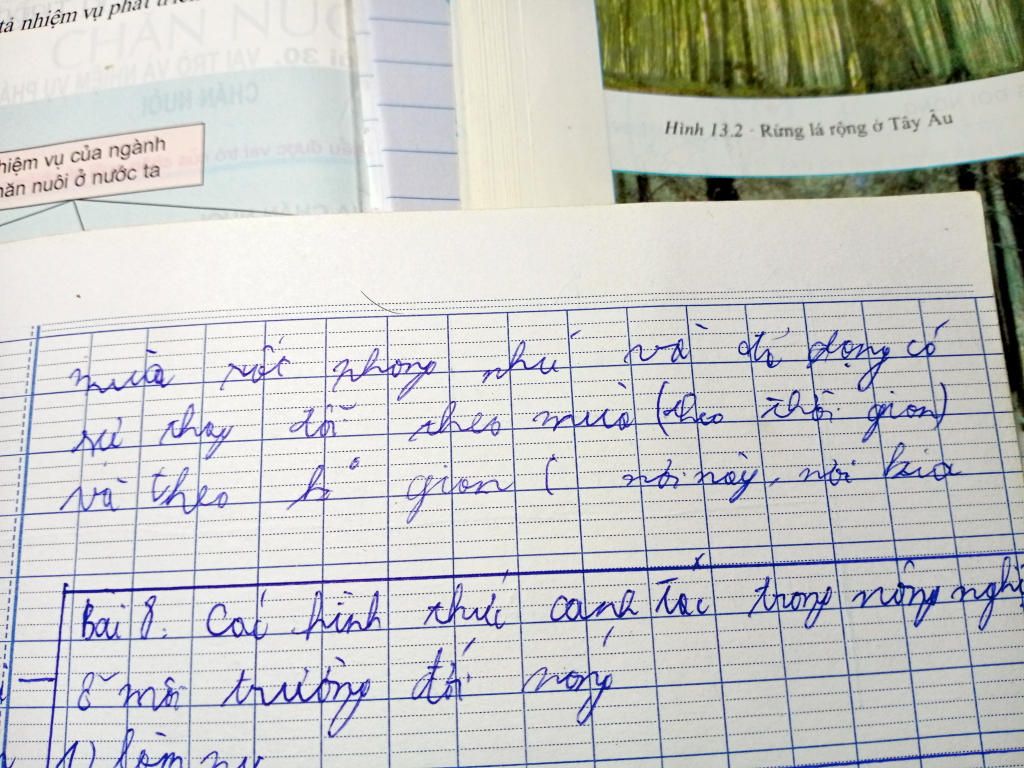 tả nhiệm vụ phát triển
CHĂN NUÔ
BÀI 30. VAI TRÒ VÀ NHIỆM VỤ PHÁ
CHĂN NUÔI
hiệm vụ của ngành
hăn nuôi ở nước ta
Hình 13.2 - Rừng lá rộng ở Tây Âu
mùa rất phong phú và đa dạng có
sự thay đổi theo mùa (theo thời gian)
và theo k° gian ( nơi này, nơi kia
Bài 8: Các hình thức canh tác trong nông nghi
ở môi trường đới nóng
1) làm nư